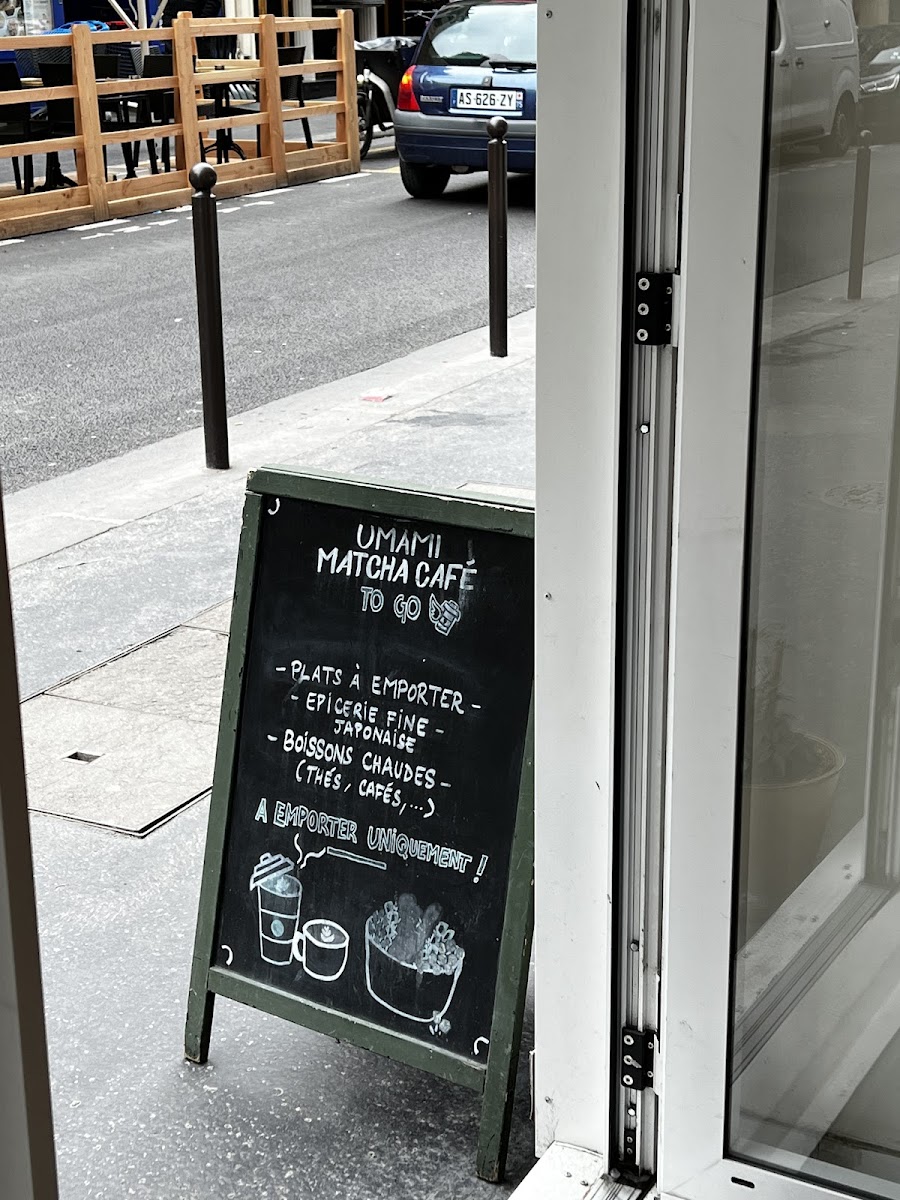 AS-626-ZY
UMAMI
MATCHA CAFÉ
TO GO
- PLATS À EMPORTER -
- EPICERIE FINE -
JAPONAISE
- BOISSONS CHAUDES -
(THÉS, CAFÉS, ...)
A EMPORTER UNIQUEMENT !